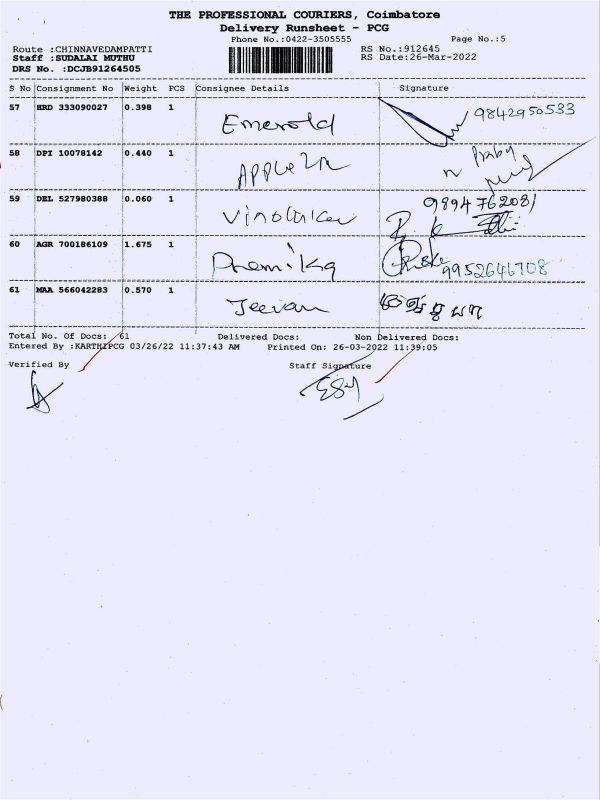 THE PROFESSIONAL COURIERS, Coimbatore
Delivery Runsheet - PCG
Phone No.:0422-3505555 Page No.:5
Route :CHINNAVEDAMPATTI RS No.:912645
Staff :SUDALAI MUTHU RS Date:26-Mar-2022
DRS No. :DCJB91264505
S No Consignment No Weight PCS Consignee Details Signature
57 HRD 333090027 0.398 1 Emerold 9842950533
58 DPI 10078142 0.440 1
59 DEL 527980388 0.060 1 9894762081
60 AGR 700186109 1.675 1 Premika 9952646708
61 MAA 566042283 0.570 1 Jeevan
Total No. Of Docs: 61 Delivered Docs: Non Delivered Docs:
Entered By :KARTHIPCG 03/26/22 11:37:43 AM Printed On: 26-03-2022 11:39:05
Verified By Staff Signature